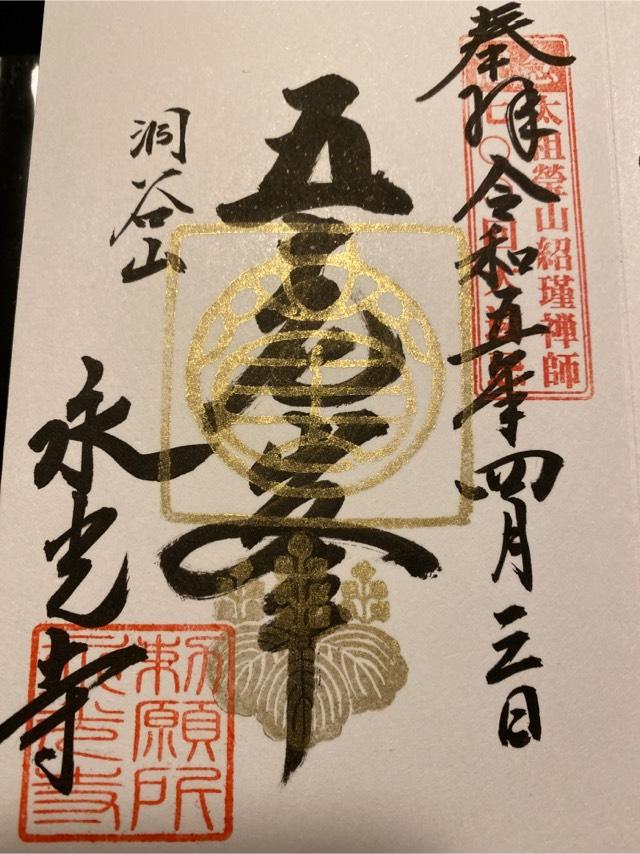 奉拝 令和五年四月三日
太祖瑩山紹瑾禅師
五老峯
洞谷山
永光寺
勅願所
永光寺